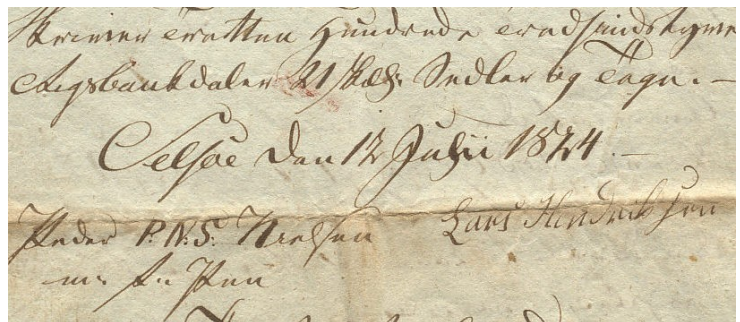 Skriver Tretten Hundrede Tredsindstyve
Rigsbankdaler 21 Sedler og Tegn. —
Selsøe den 12 Julii 1824. —
Peder P. N. S. Nielsen Lars Hendriksen
m: f: Pen